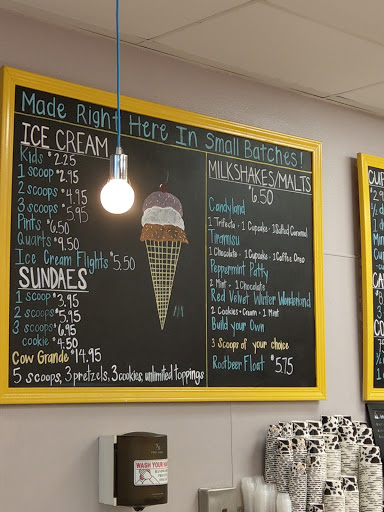 Made Right Here In Small Batches!
ICE CREAM
Kids $2.25
1 scoop $2.95
2 scoops $4.95
3 scoops $5.95
Pints $6.50
Quarts $9.50
Ice Cream Flights $5.50
SUNDAES
1 scoop $3.95
2 scoops $5.95
3 scoops $6.95
cookie $4.50
Cow Grande $14.95
5 scoops, 3 pretzels, 3 cookies, unlimited toppings
MILKSHAKES/MALTS
$6.50
Candyland
1 Trifecta · 1 Cupcake · 1 Salted Caramel
Tiramisu
1 Chocolate · 1 Cupcake · 1 Coffee Oreo
Peppermint Patty
2 Mint · 1 Chocolate
Red Velvet Winter Wonderland
2 Cookies + Cream · 1 Mint
Build your Own
3 Scoops of your choice
Rootbeer Float $5.75
WASH YOUR